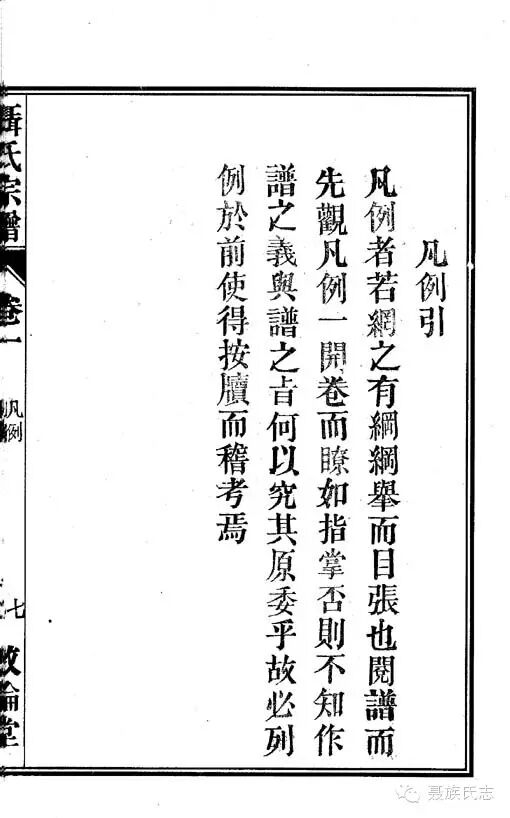 凡例引
凡例者若網之有綱綱舉而目張也閱譜而
先觀凡例一開卷而瞭如指掌否則不知作
譜之義與譜之旨何以究其原委乎故必列
例於前使得按牘而稽考焉
聶氏宗譜
卷一
凡例
七
敦倫堂
聂族氏志